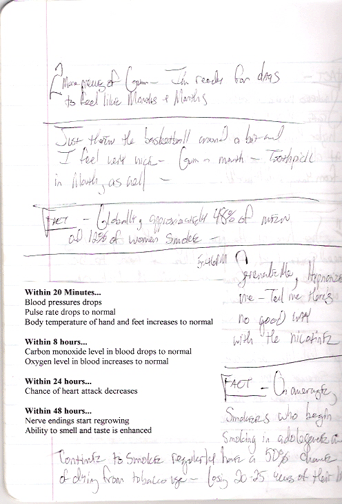 2 More pieces of Gum - I'm ready for days
to feel like Months & Months
Just threw the basketball around a bit and
I feel very nice - Gum in mouth - Toothpick
in Mouth, as well -
FACT - Globally, approximately 48% of men
12% of women smoke -
me - Tell me there's
no good
with the nicotine
Within 20 Minutes...
Blood pressures drops
Pulse rate drops to normal
Body temperature of hand and feet increases to normal
Within 8 hours...
Carbon monoxide level in blood drops to normal
Oxygen level in blood increases to normal
Within 24 hours...
Chance of heart attack decreases
Within 48 hours...
Nerve endings start regrowing
Ability to smell and taste is enhanced
FACT - On average,
Smokers who begin
Smoking in adolescence
Continue to Smoke regularly have a 50% chance
of dying from tobacco use - Losing 20-25 years of their